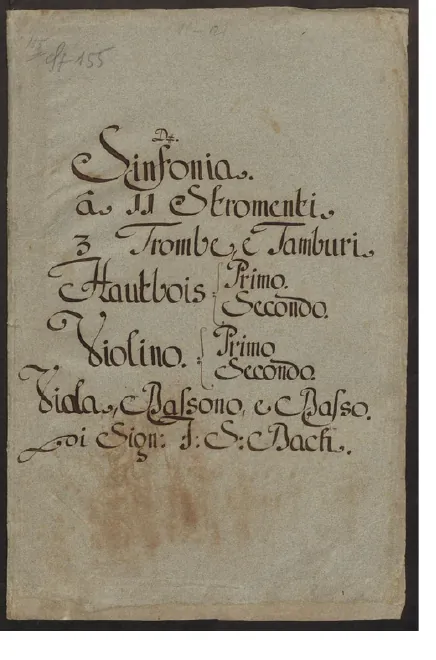 St 155
D#.
Sinfonia.
â 11 Stromenti.
3 Trombe, e Tamburi.
Hautbois: Primo.
Secondo.
Violino.: Primo
Secondo.
Viola, Bassono, e Basso.
di Sign: J: S: Bach.